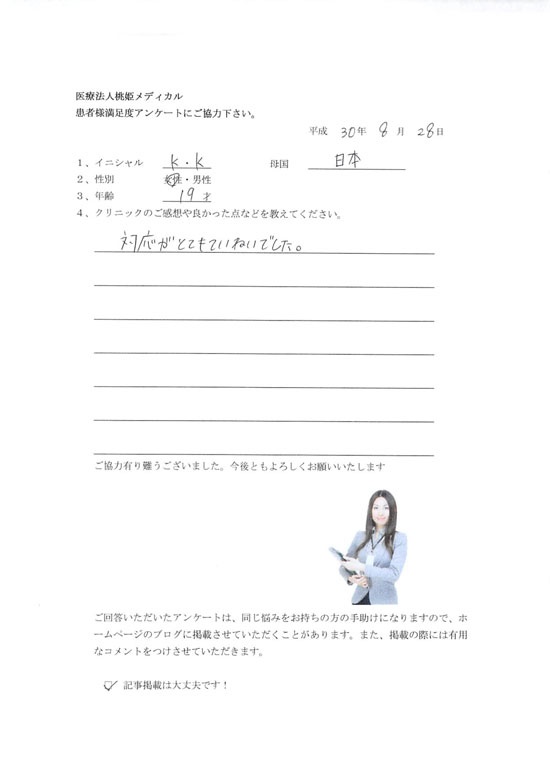 医療法人桃姫メディカル
患者様満足度アンケートにご協力下さい。
平成 30年 8 月 28日
1、イニシャル K.K 母国 日本
2、性別 女性・男性
3、年齢 19 才
4、クリニックのご感想や良かった点などを教えてください。
対応がとてもていねいでした。
ご協力有り難うございました。今後ともよろしくお願いいたします
ご回答いただいたアンケートは、同じ悩みをお持ちの方の手助けになりますので、ホ
ームページのブログに掲載させていただくことがあります。また、掲載の際には有用
なコメントをつけさせていただきます。
記事掲載は大丈夫です！